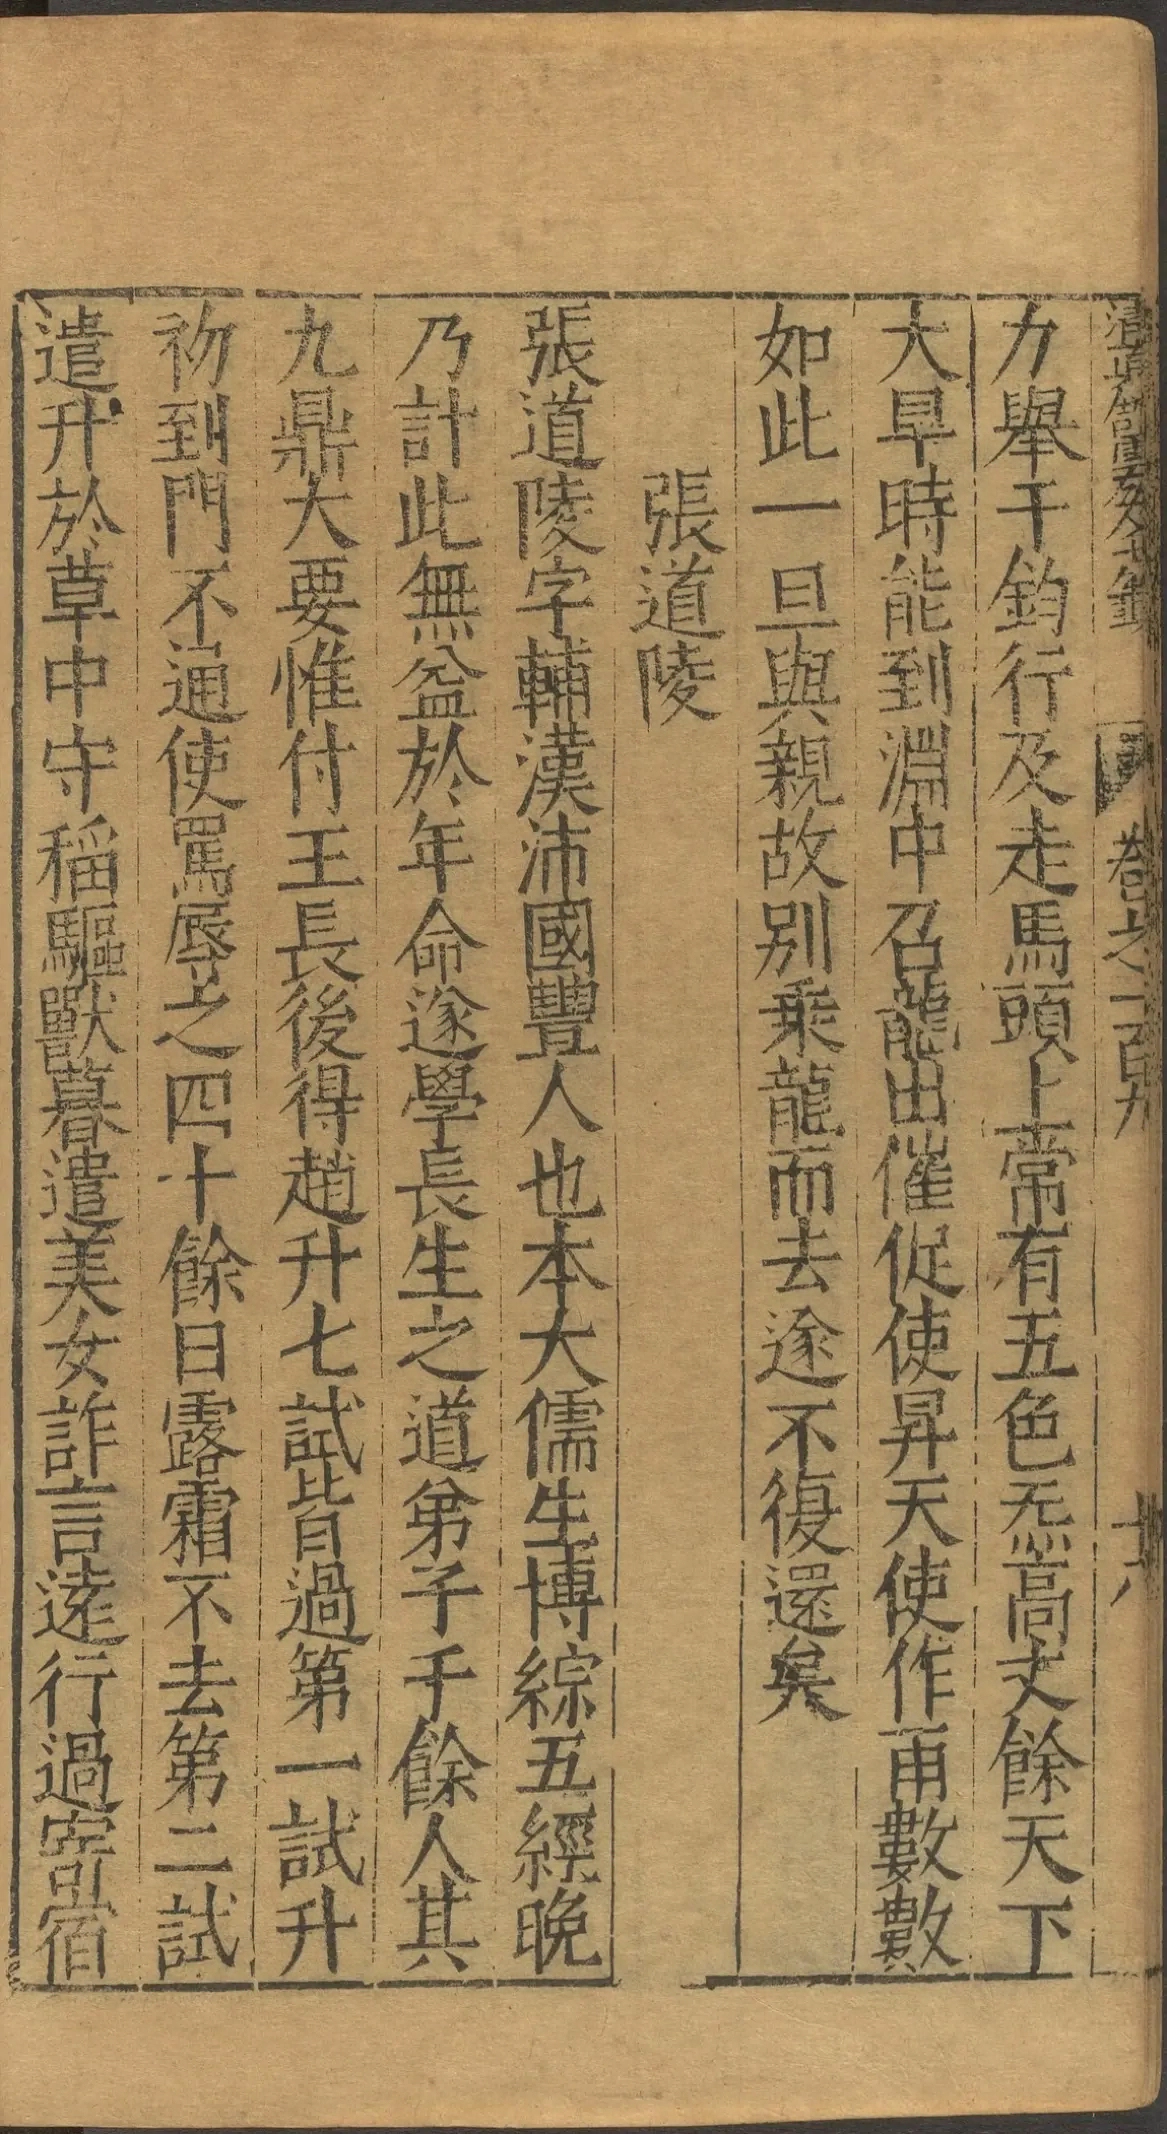 清真館雲笈七籤 卷之一百九 十八
力舉千鈞行及走馬頭上常有五色炁高丈餘天下
大旱時能到淵中召龍出催促使昇天使作雨數數
如此一旦與親故别乘龍而去遂不復還矣
張道陵
張道陵字輔漢沛國豐人也本大儒生博綜五經晚
乃計此無益於年命遂學長生之道弟子千餘人其
九鼎大要惟付王長後得趙升七試皆過第一試升
初到門不通使罵辱之四十餘日露霜不去第二試
遣升於草中守稻驅獸暮遣美女詐言遠行過寄宿